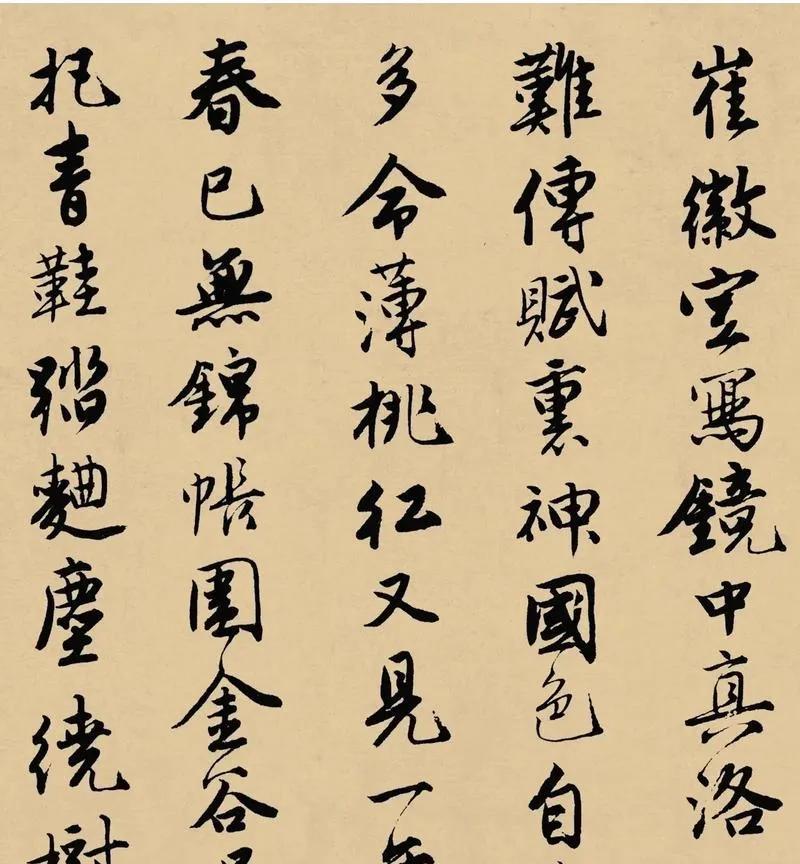 崔徽空寫鏡中真洛
難傳賦裏神國色自
多命薄桃紅又見一
春已無錦帳圍金谷
把青鞋踏麴塵繞